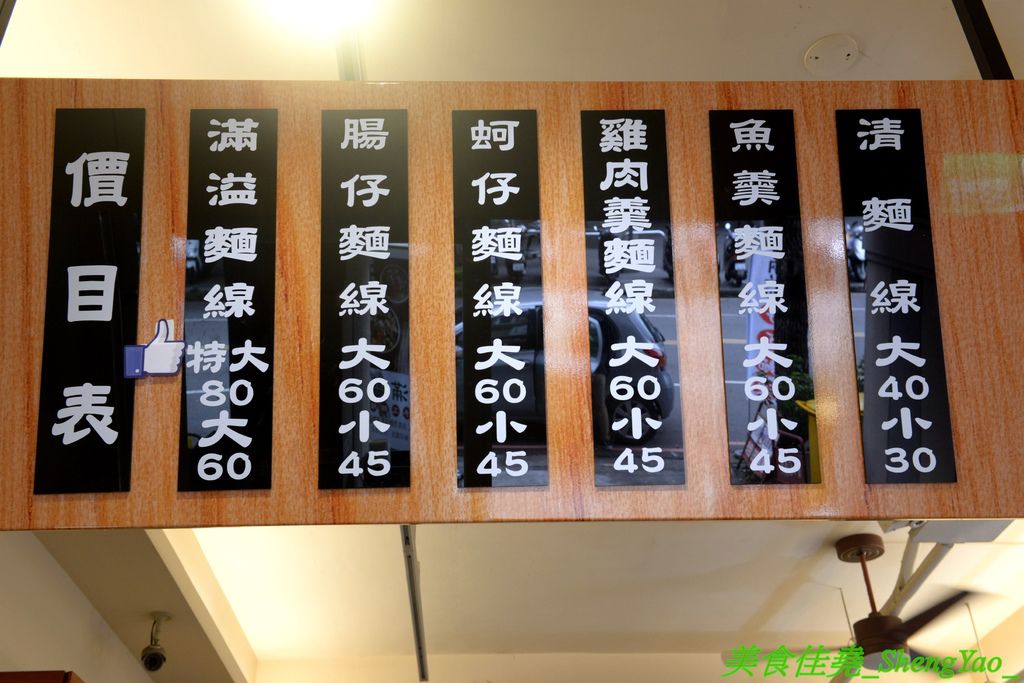 價目表
滿溢麵線特大80大60
腸仔麵線大60小45
蚵仔麵線大60小45
雞肉羹麵線大60小45
魚羹麵線大60小45
清麵線大40小30
美食佳堯_ShengYao_